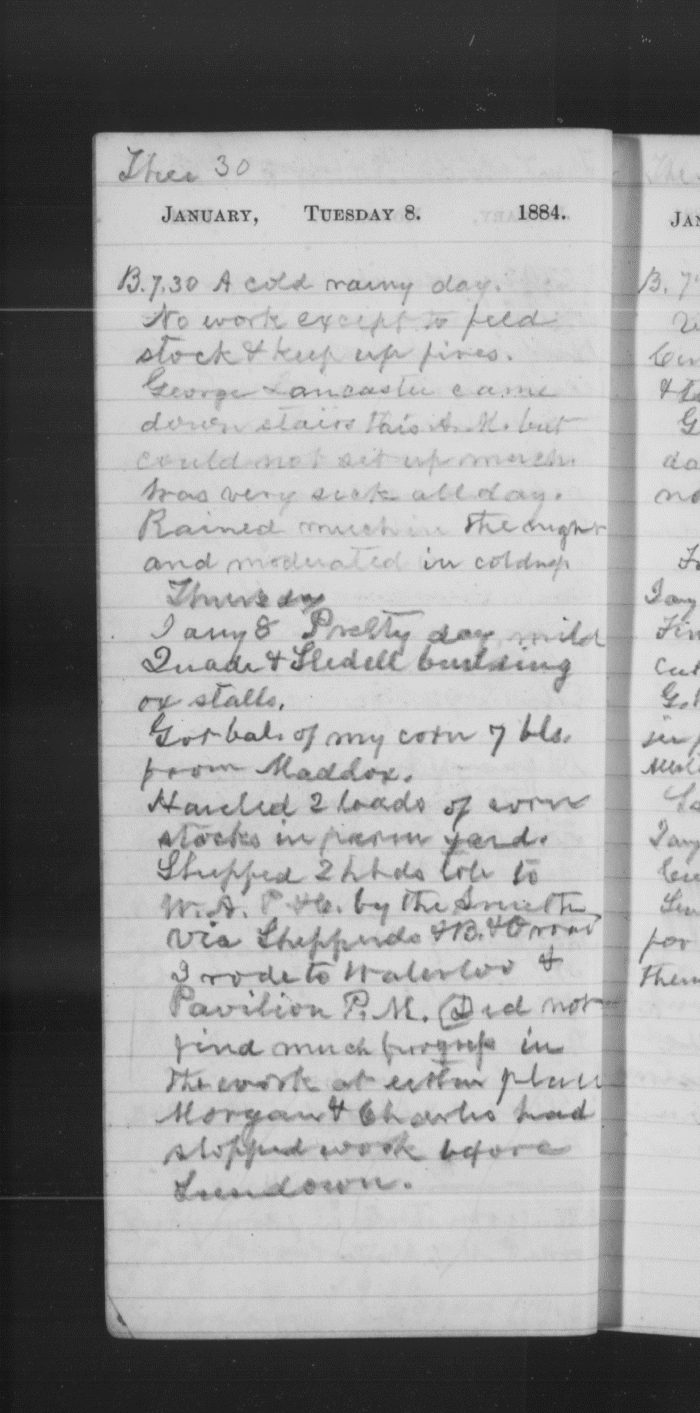 Ther 30
JANUARY, TUESDAY 8. 1884.
B. 7.30 A cold rainy day.
No work except to feed
stock & keep up fires.
George Lancaster came
down stairs this A.M. but
could not sit up much.
Was very sick all day.
Rained much in the night
and moderated in coldness
Thursday
Jany 8 Pretty day, mild
Quade & Sledell building
ox stalls.
Got bal. of my corn 7 bls.
from Maddox.
Hauled 2 loads of corn
stocks in farm yard.
Shipped 2 hhds tob to
W. A. P & Co. by the Smith
Via Shepperds & B. & O road
I rode to Waterloo &
Pavilion P.M. Did not
find much progress in
the work at either place
Morgan & Charles had
stopped work before
Sundown.
JAN
B. 7
& to
G
da
no
Jany
Fin
cut
G
Jany
for
them